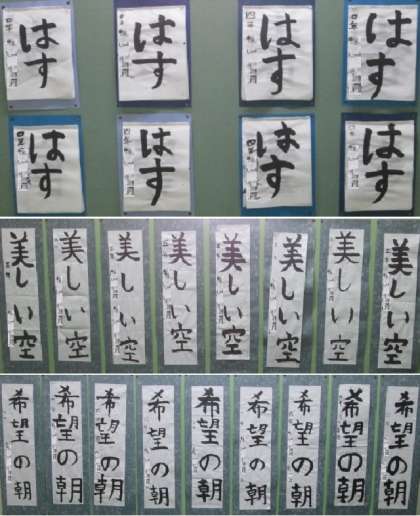 はす
はす
はす
はす
はす
はす
はす
はす
美しい空
美しい空
美しい空
美しい空
美しい空
美しい空
美しい空
美しい空
希望の朝
希望の朝
希望の朝
希望の朝
希望の朝
希望の朝
希望の朝
希望の朝
希望の朝